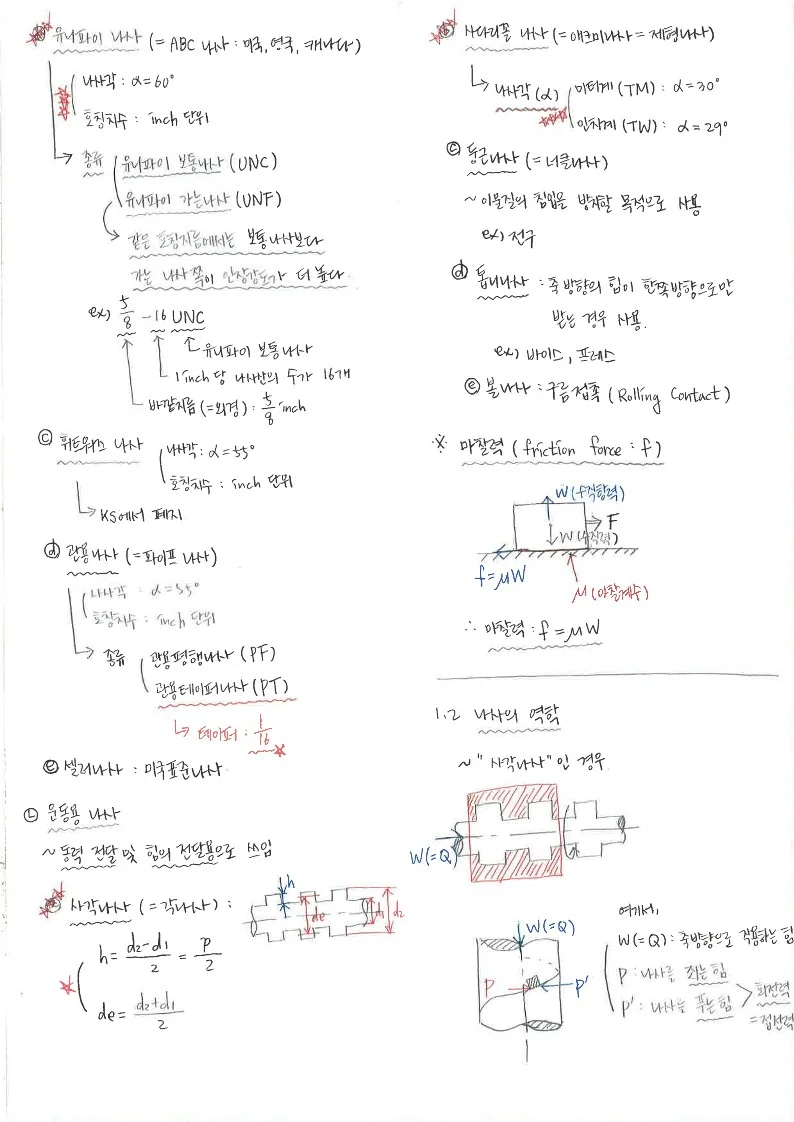 ⓑ 유니파이 나사 (= ABC 나사 : 미국, 영국, 캐나다)
나사각 : α=60°
호칭치수 : inch 단위
종류 유니파이 보통나사 (UNC)
유니파이 가는나사 (UNF)
같은 호칭지름에서는 보통나사보다
가는 나사쪽이 인장강도가 더 높다
ex) 5/8 - 16 UNC
유니파이 보통나사
1 inch 당 나사산의 수가 16개
바깥지름 (= 외경) : 5/8 inch
ⓒ 휘트워스 나사 나사각 : α=55°
호칭치수 : inch 단위
KS에서 폐지
ⓓ 관용나사 (= 파이프 나사)
나사각 : α=55°
호칭치수 : inch 단위
종류 관용평행나사 (PF)
관용테이퍼나사 (PT)
테이퍼 : 1/16
ⓔ 셀러나사 : 미국표준나사
㉡ 운동용 나사
~ 동력 전달 및 힘의 전달용으로 쓰임
ⓐ 사각나사 (= 각나사) :
h de d1 d2
h = (d2-d1)/2 = p/2
de = (d2+d1)/2
ⓑ 사다리꼴 나사 (= 애크미나사 = 제형나사)
나사각 (α) 미터계 (TM) : α=30°
인치계 (TW) : α=29°
ⓒ 둥근나사 (= 너클나사)
~ 이물질의 침입을 방지할 목적으로 사용
ex) 전구
ⓓ 톱니나사 : 축방향의 힘이 한쪽방향으로만
받는 경우 사용.
ex) 바이스, 프레스
ⓔ 볼나사 : 구름접촉 (Rolling Contact)
※ 마찰력 (friction force : f)
W (수직항력)
F
W (수직력)
f=μW
μ (마찰계수)
∴ 마찰력 : f = μW
1.2 나사의 역학
~ "사각나사" 인 경우
W(=Q)
W(=Q)
P P'
여기서,
W(=Q) : 축방향으로 작용하는 힘
P : 나사를 죄는 힘
P' : 나사를 푸는 힘
회전력
= 접선력